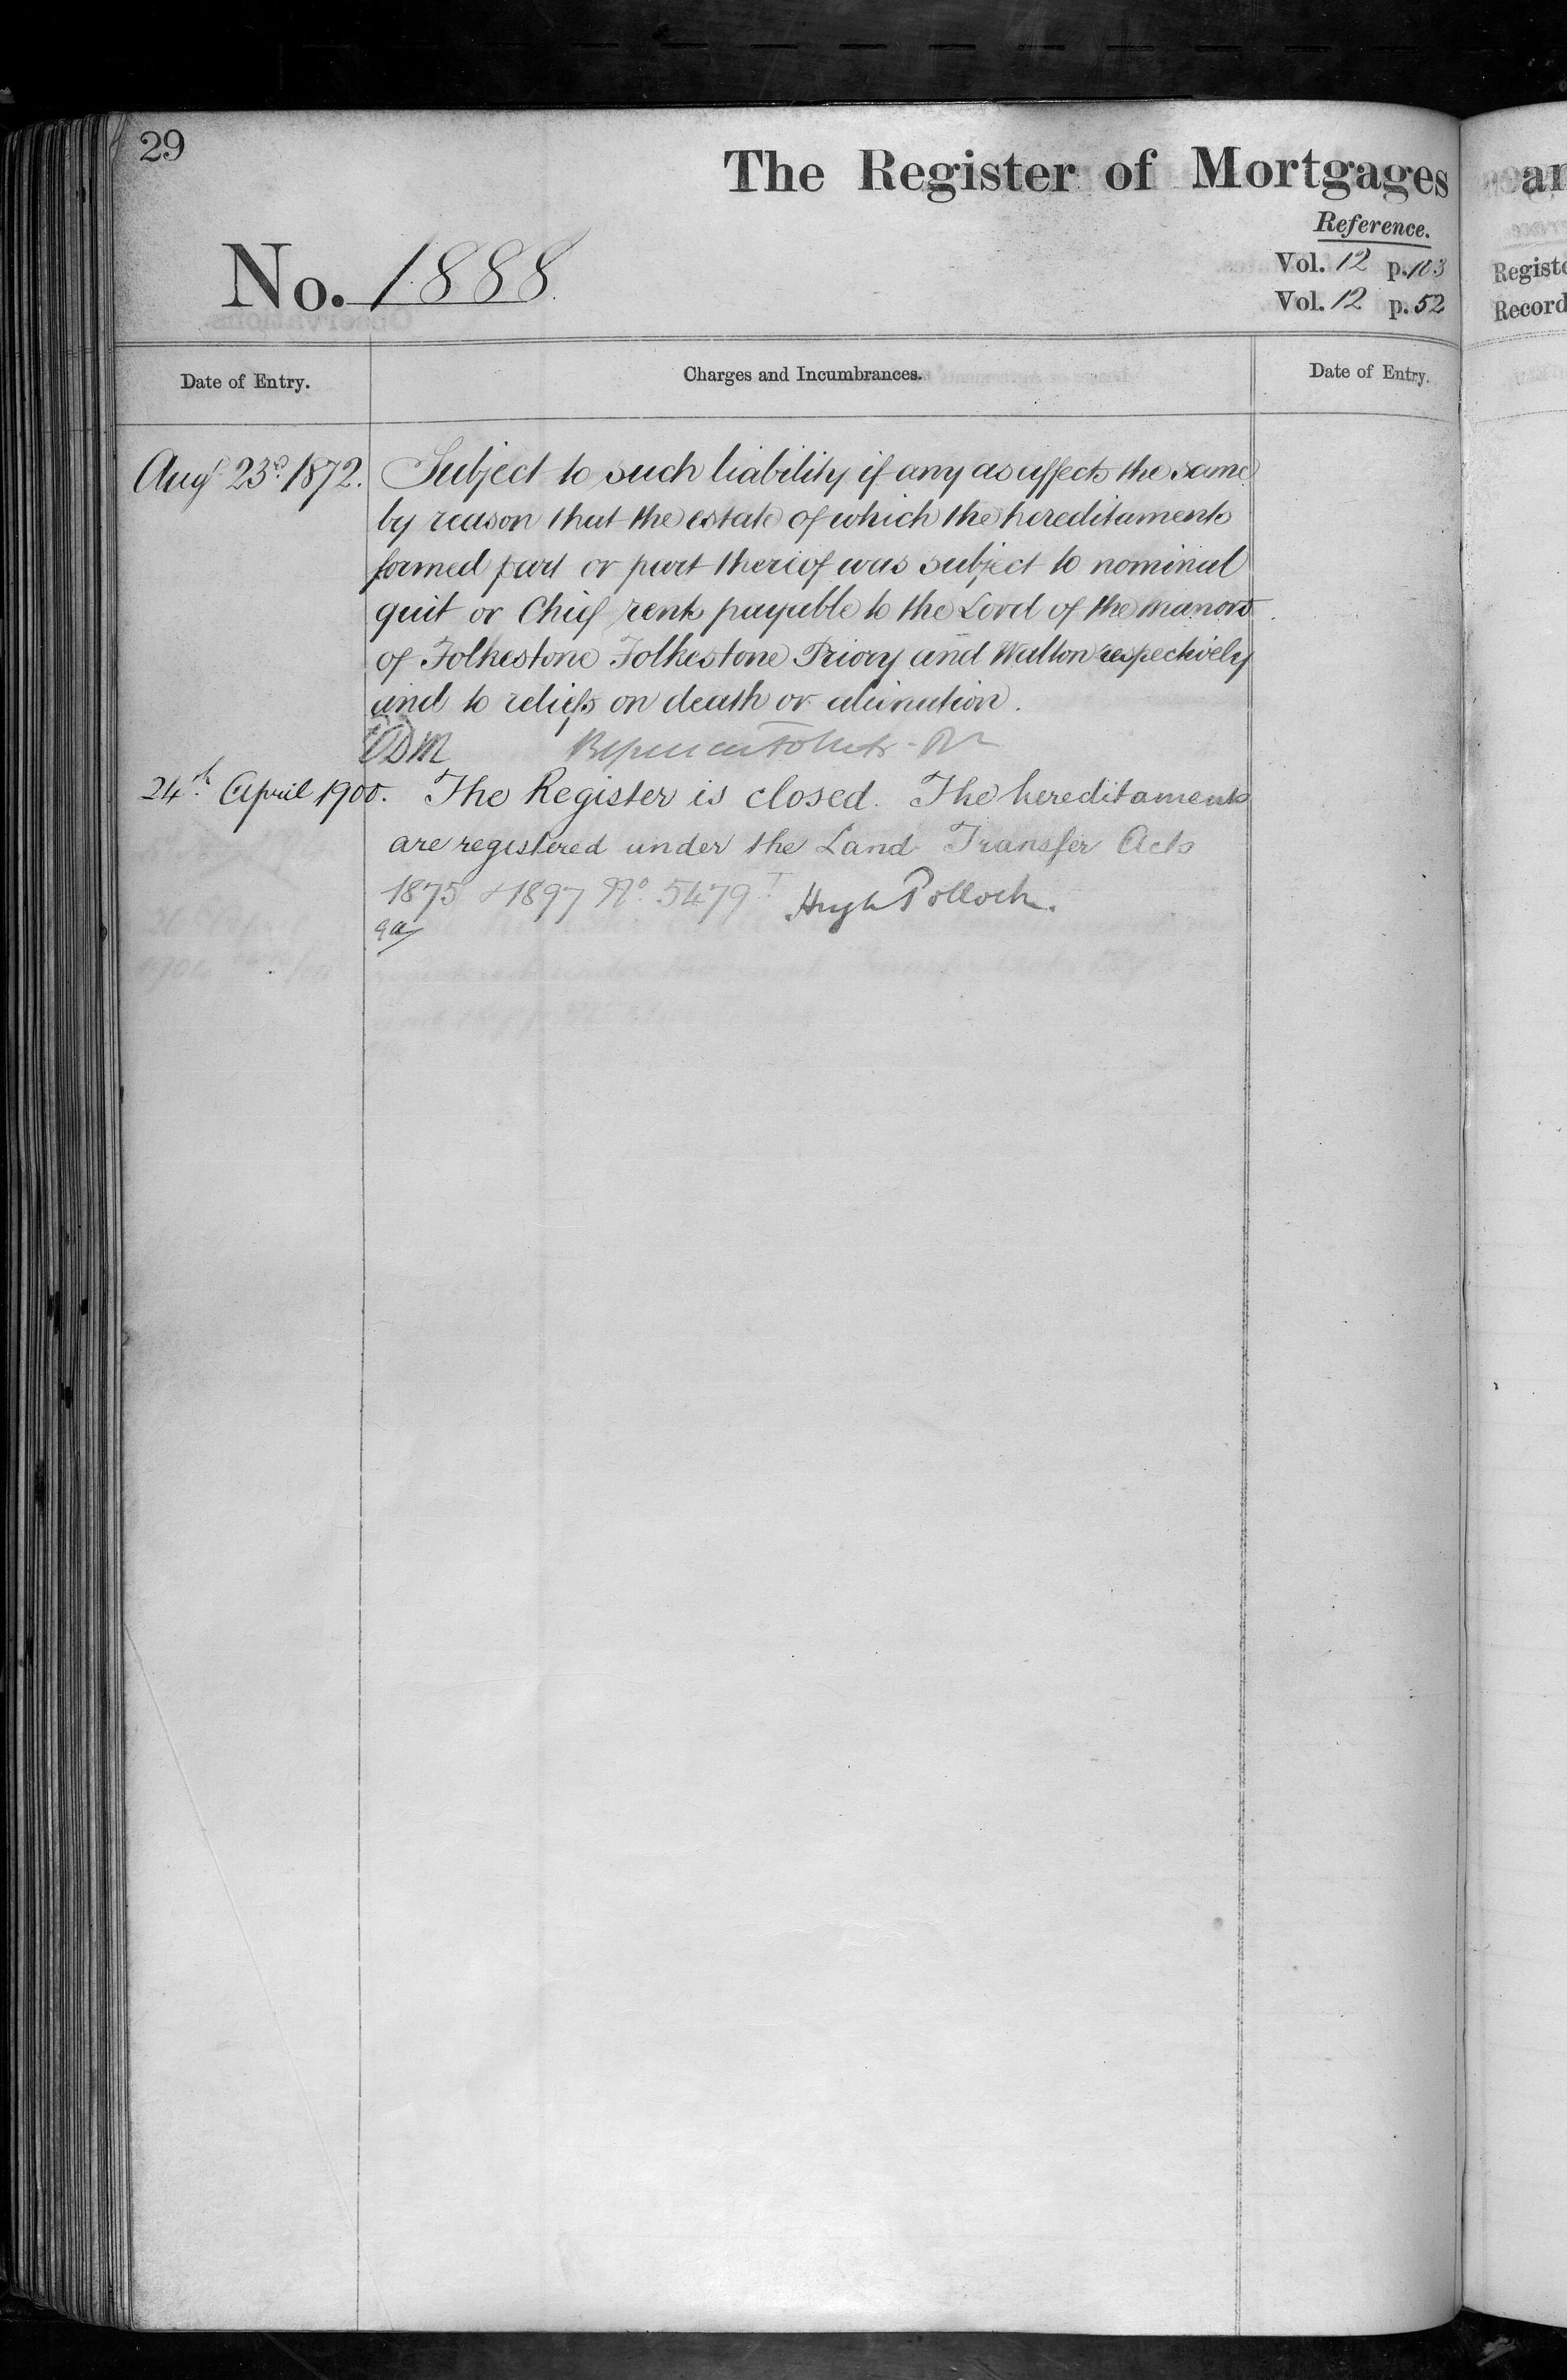 29
The Register of Mortgages
Reference.
No. 1888.
Vol. 12 p. 103
Vol. 12 p. 52
Registe
Record
Date of Entry.
Charges and Incumbrances.
Date of Entry.
Augt 23d. 1872.
Subject to such liability if any as affects the same
by reason that the estate of which the hereditaments
formed part or part thereof was subject to nominal
quit or Chief rents payable to the Lord of the manors
of Folkestone Folkestone Priory and Walton respectively
and to reliefs on death or alienation.
24th. April 1900.
The Register is closed. The hereditaments
are registered under the Land Transfer Acts
1875 & 1897 No. 5479 Hugh Pollock.